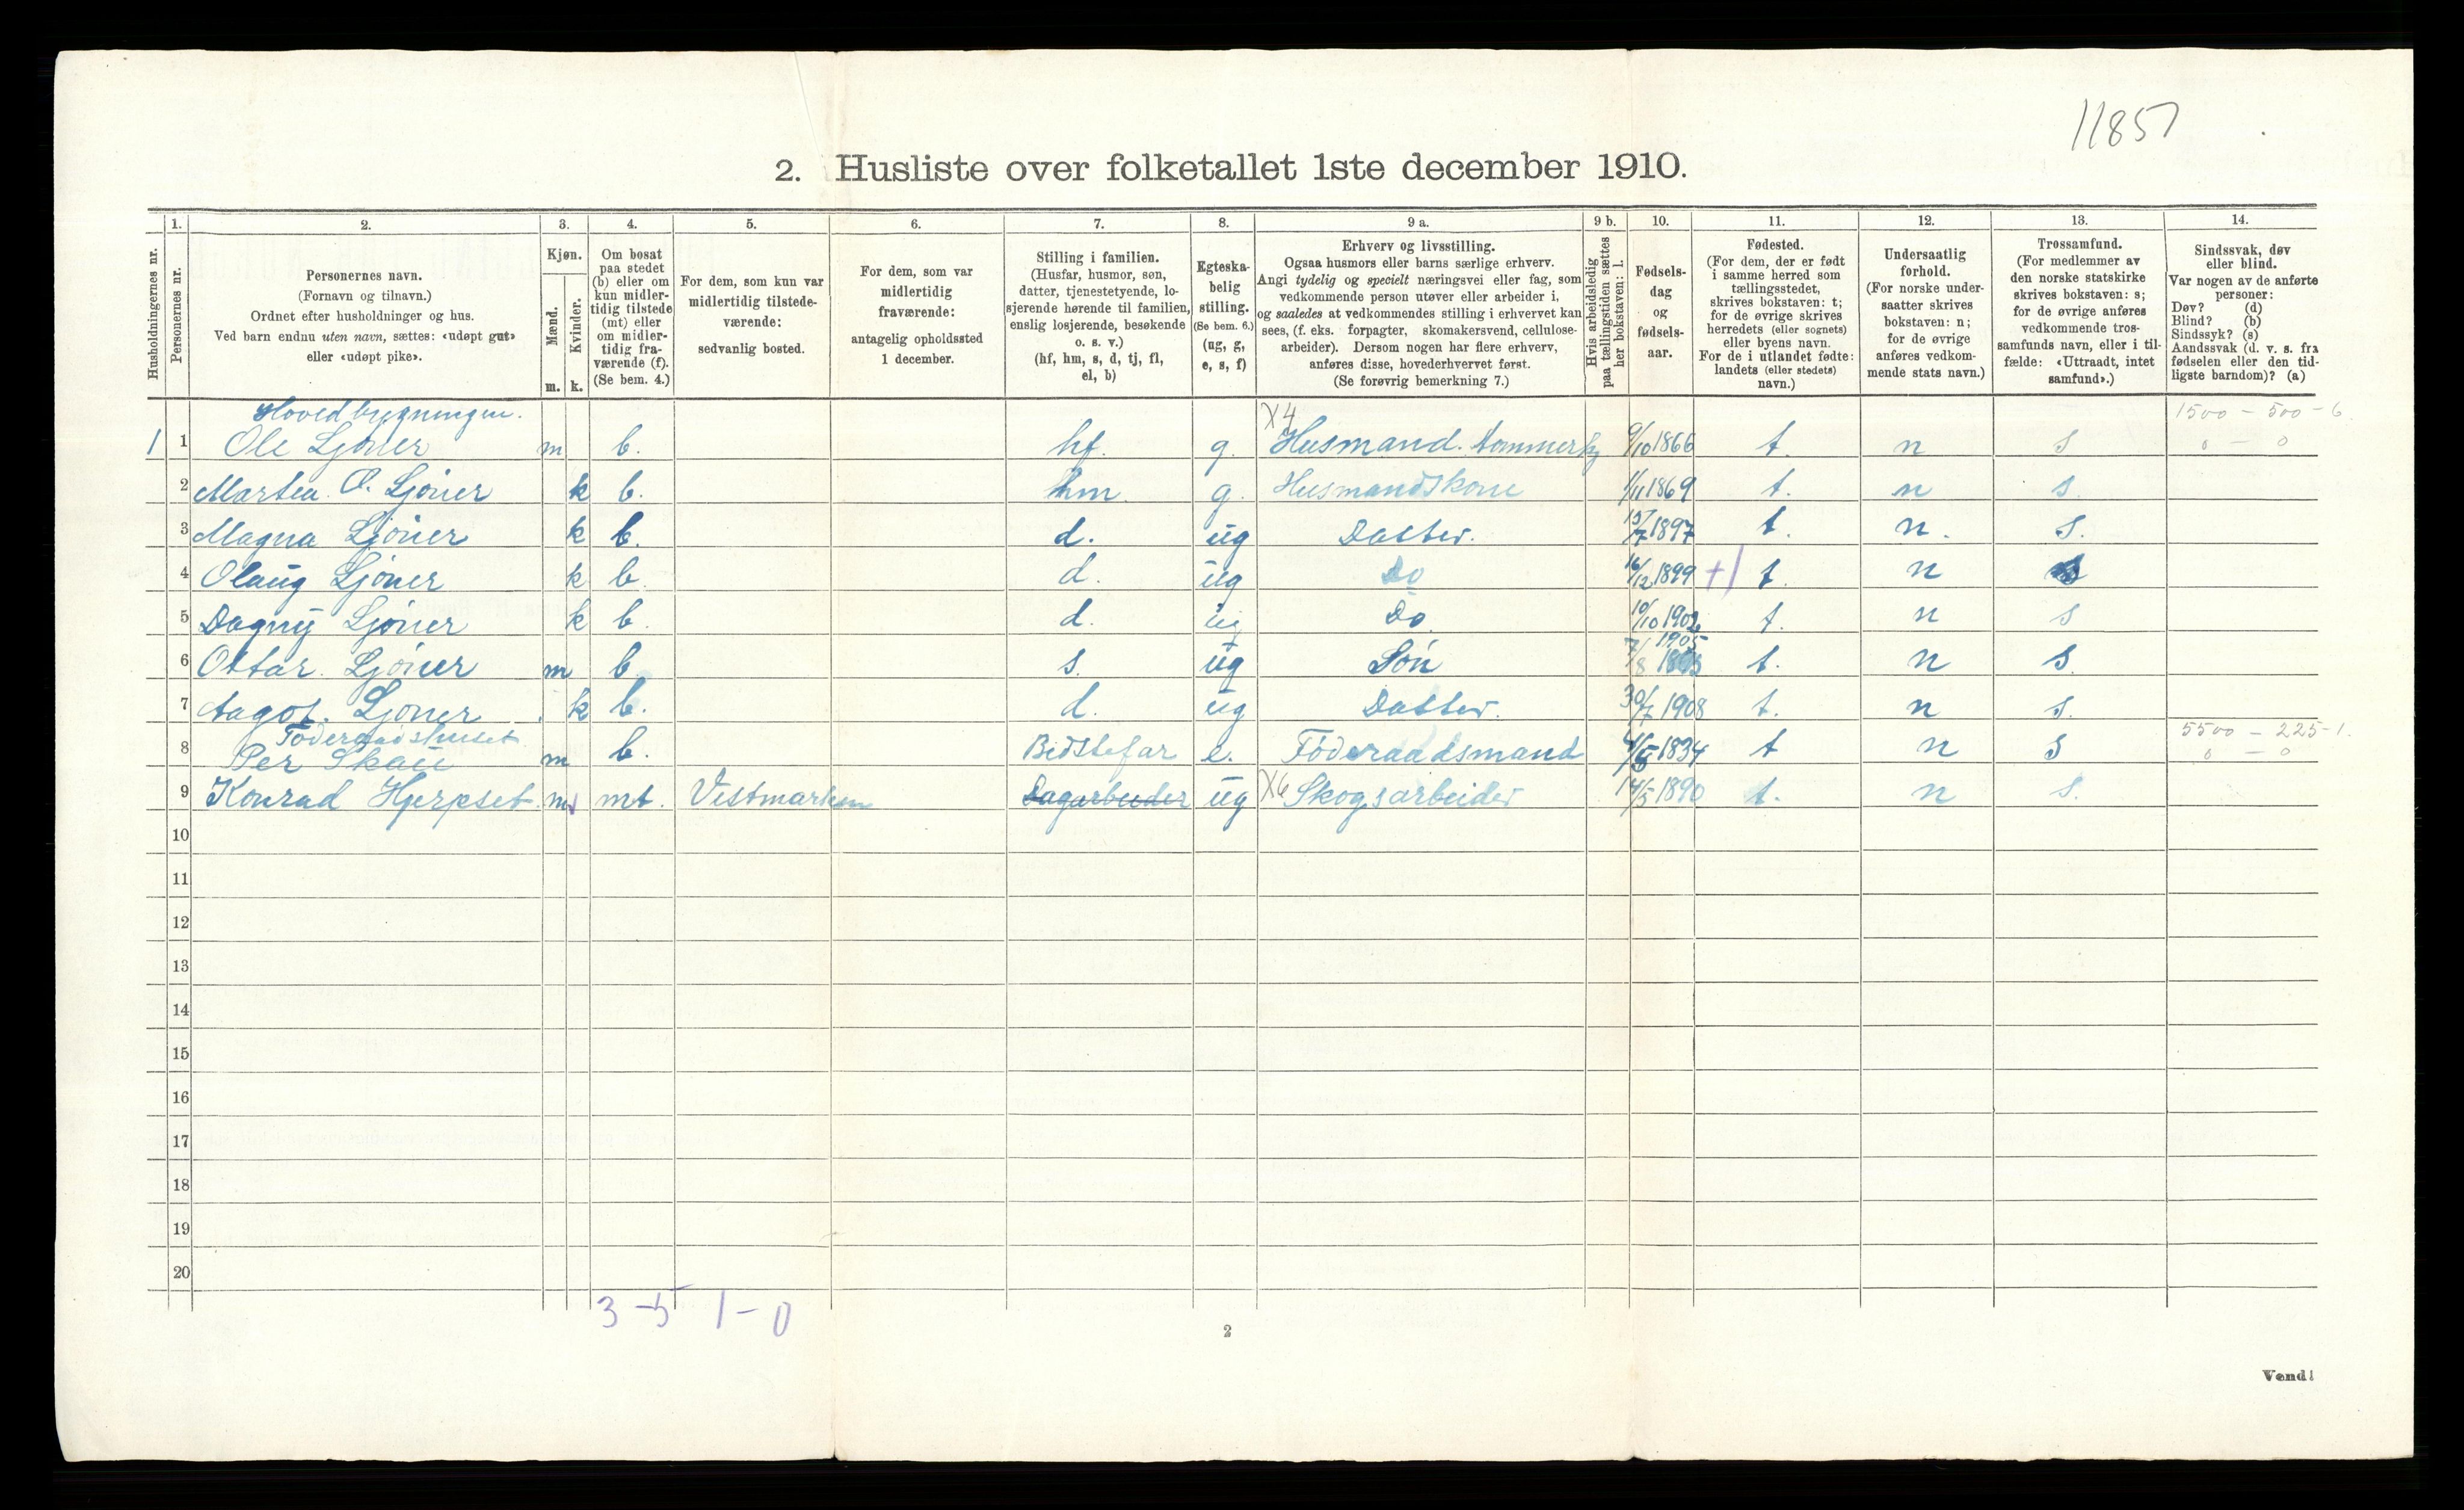 11857
2. Husliste over folketallet 1ste december 1910.
Husholdningernes nr.
1.
Personernes nr.
2.
Personernes navn.
(Fornavn og tilnavn.)
Ordnet efter husholdninger og hus.
Ved barn endnu uten navn, sættes: «udøpt gut»
eller «udøpt pike».
3.
Kjøn.
Mænd.
Kvinder.
m. k.
4.
Om bosat
paa stedet
(b) eller om
kun midler-
tidig tilstede
(mt) eller
om midler-
tidig fra-
værende (f).
(Se bem. 4.)
5.
For dem, som kun var
midlertidig tilstede-
værende:
sedvanlig bosted.
6.
For dem, som var
midlertidig
fraværende:
antagelig opholdssted
1 december.
7.
Stilling i familien.
(Husfar, husmor, søn,
datter, tjenestetyende, lo-
sjerende hørende til familien,
enslig losjerende, besøkende
o. s. v.)
(hf, hm, s, d, tj, fl,
el, b)
8.
Egteska-
belig
stilling.
(Se bem. 6.)
(ug, g,
e, s, f)
9 a.
Erhverv og livsstilling.
Ogsaa husmors eller barns særlige erhverv.
Angi tydelig og specielt næringsvei eller fag, som
vedkommende person utøver eller arbeider i,
og saaledes at vedkommendes stilling i erhvervet kan
sees, (f. eks. forpagter, skomakersvend, cellulose-
arbeider). Dersom nogen har flere erhverv,
anføres disse, hovederhvervet først.
(Se forøvrig bemerkning 7.)
9 b.
Hvis arbeidsledig
paa tællingstiden sættes
her bokstaven: l.
10.
Fødsels-
dag
og
fødsels-
aar.
11.
Fødested.
(For dem, der er født
i samme herred som
tællingsstedet,
skrives bokstaven: t;
for de øvrige skrives
herredets (eller sognets)
eller byens navn.
For de i utlandet fødte:
landets (eller stedets)
navn.)
12.
Undersaatlig
forhold.
(For norske under-
saatter skrives
bokstaven: n;
for de øvrige
anføres vedkom-
mende stats navn.)
13.
Trossamfund.
(For medlemmer av
den norske statskirke
skrives bokstaven: s;
for de øvrige anføres
vedkommende tros-
samfunds navn, eller i til-
fælde: «Uttraadt, intet
samfund».)
14.
Sindssvak, døv
eller blind.
Var nogen av de anførte
personer:
Døv? (d)
Blind? (b)
Sindssyk? (s)
Aandssvak (d. v. s. fra
fødselen eller den tid-
ligste barndom)? (a)
Hovedbygningen. X4 1500 - 500 - 6
1 1 Ole Ljöner m b. hf. g. Husmand. 9/10 1866 t. n s 0 - 0
2 Martea O. Ljöner k b. hm. g. Husmandskone 1/11 1869 t. n s.
3 Magna Ljöner k b. d. ug Datter. 15/7 1897 t. n. s.
4 Olaug Ljöner k b. d. ug Do 16/12 1899 +1 t. n s
5 Dagny Ljöner k b. d. ug Do. 10/10 1902 t. n s
1905
6 Ottar. Ljöner m b s. ug Sön 7/8 t. n s.
7 Aagot. Ljöner k b. d. ug Datter. 30/7 1908 t. n s.
Föderaadshuset 5500 - 225-1.
8 Per Skau m b. Bedstefar e. Föderaadsmand 4/5 1834 t n s 0 - 0
9 Konrad Hjerpset m mt. Vestmarken Dagarbeider ug X6 Skogsarbeider 14/5 1890 t. n s.
10
11
12
13
14
15
16
17
18
19
20
3 - 5 1 - 0
2
Vend!